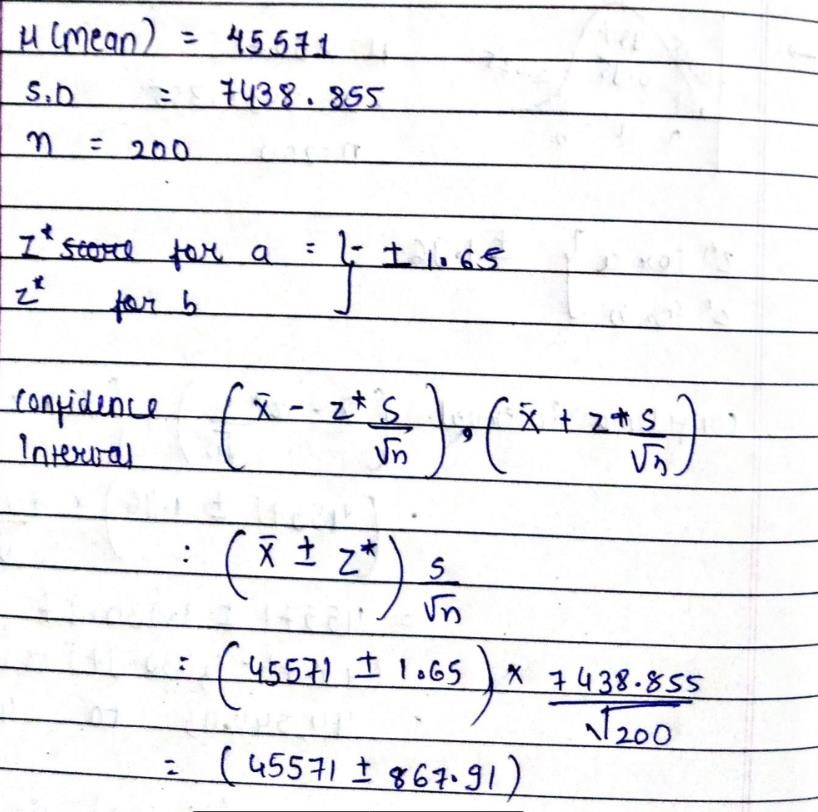 μ (mean) = 45571
S.D = 7438.855
n = 200
Z* score for a = } - ± 1.65
z* for b
Confidence Interval ( x̄ - z* s/√n ) , ( x̄ + z* s/√n )
: ( x̄ ± z* ) s/√n
= ( 45571 ± 1.65 ) × 7438.855/√200
= ( 45571 ± 867.91 )